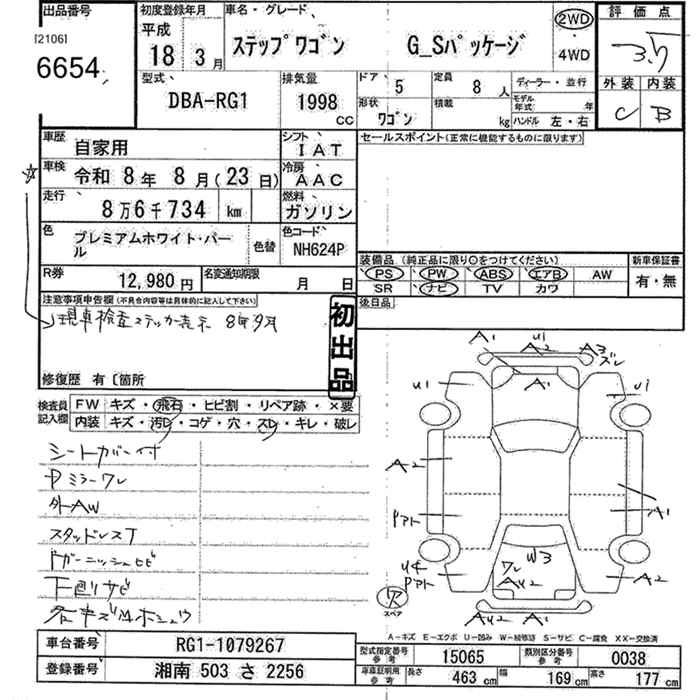 出品番号
[2106]
6654
初度登録年月
平成
18 3月
車名・グレード
ステップワゴン G_Sパッケージ
2WD
・
4WD
評価点
3.5
外装 内装
C B
型式
DBA-RG1
排気量
1998 CC
ドア 5
定員 8人
ディーラー・並行
形状 ワゴン
積載 kg
モデル年式 年
ハンドル 左・右
車歴 自家用
シフト IAT
セールスポイント(正常に機能するものに限ります)
車検 令和 8年 8月(23日)
冷房 AAC
走行 8万6千734 km
燃料 ガソリン
色 プレミアムホワイト・パール
色替
色コード NH624P
装備品(純正品に限り○をつけてください)
新車保証書
PS PW ABS エアB AW
SR ナビ TV カワ
有・無
R券 12,980円
名変通知期限 月 日
後日品
注意事項申告欄(不具合内容等は具体的に記入して下さい)
現車検査ステッカー表示 8年9月
初出品
修復歴 有〔箇所
検査員記入欄
FW キズ・飛石・ヒビ割・リペア跡・×要
内装 キズ・汚レ・コゲ・穴・スレ・キレ・破レ
シートカバー付
Pミラーワレ
外AW
スタッドレスT
Fガーニッシュヒビ
下廻サビ
各キズUホシュウ
A1 U1 A2 A3 スレ
A1
U1 U1
A2
A1
Pアト
W3
ワレ
AU2
U4
Pアト
A2
AU2 A1
スペア
A-キズ E-エクボ U-凹み W-補修跡 S-サビ C-腐食 XX-交換済
車台番号 RG1-1079267
登録番号 湘南 503 さ 2256
型式指定番号 参考 15065
類別区分番号 参考 0038
車庫証明用 参考 長さ 463 cm 幅 169 cm 高さ 177 cm